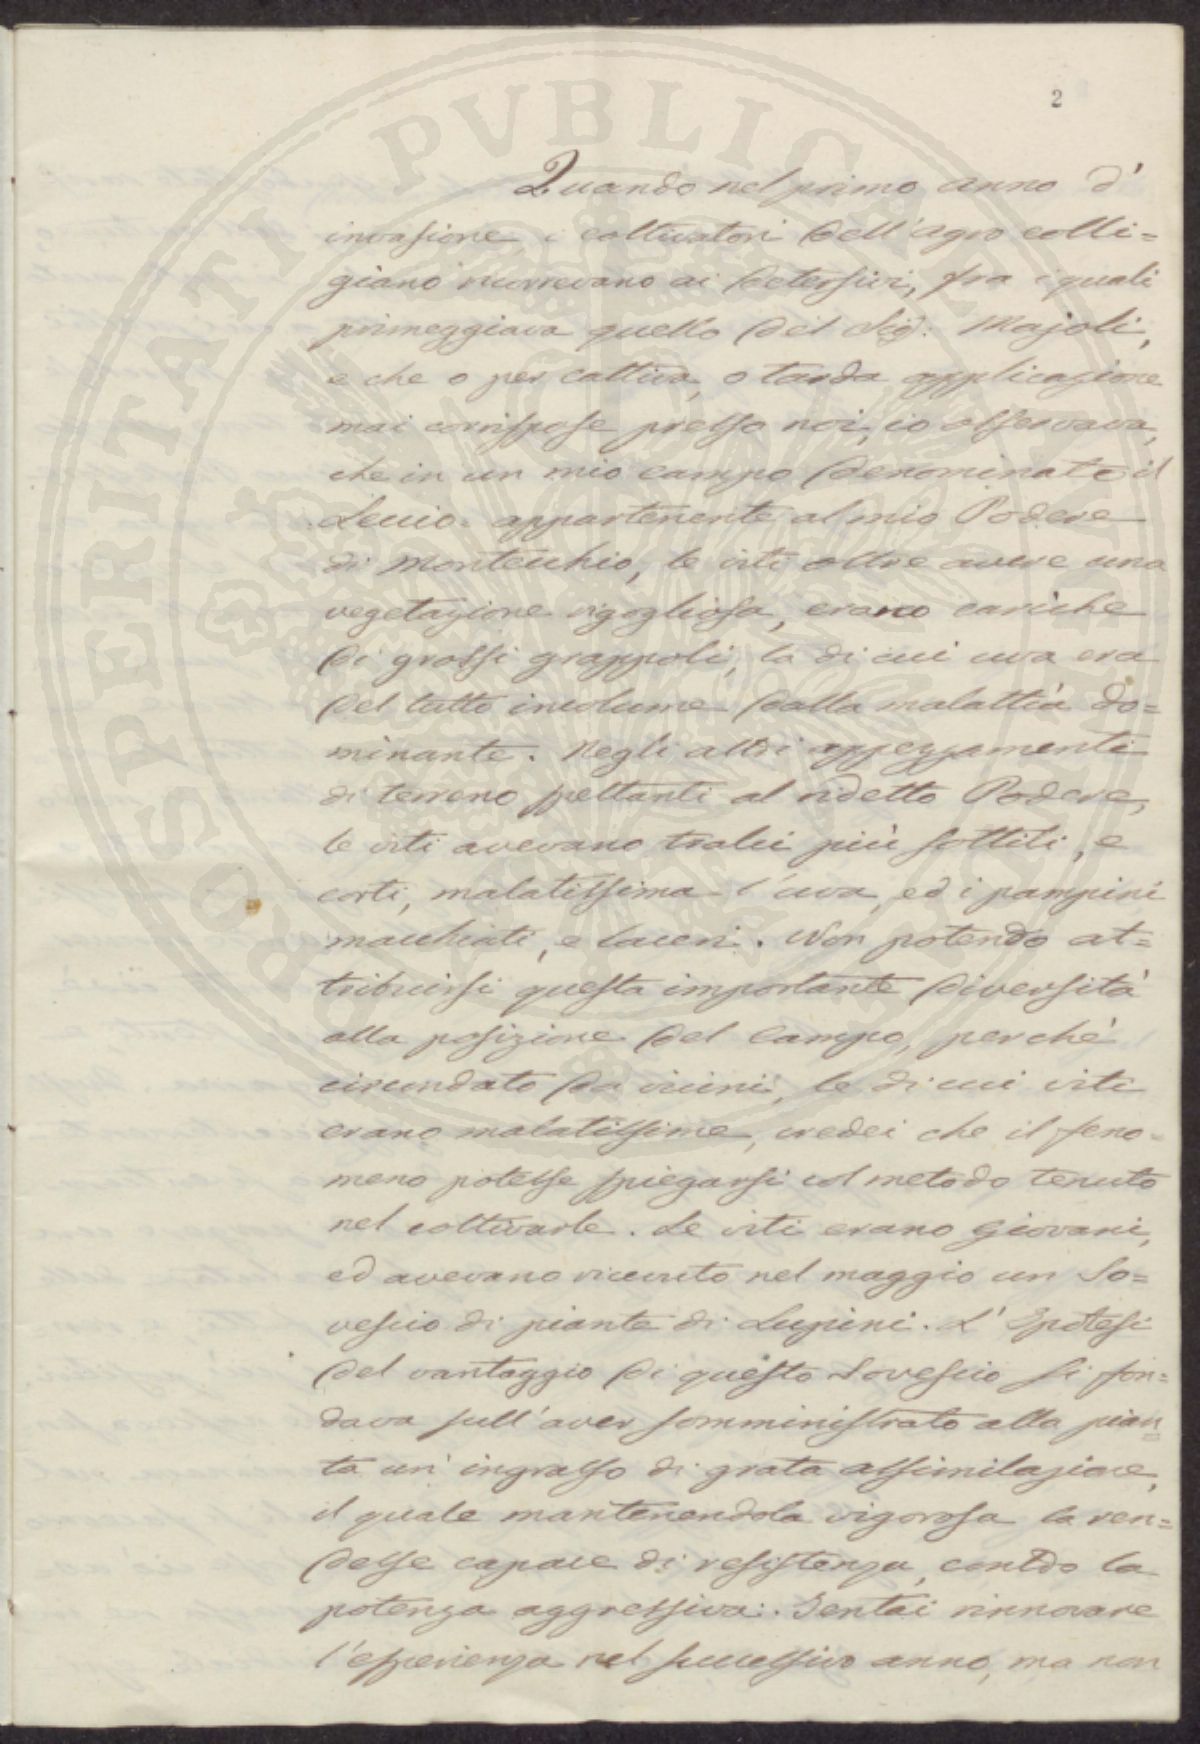 2
Quando nel primo anno d'
invasione i coltivatori dell'agro colli=
giano ricorrevano ai detersivi, fra i quali
primeggiava quello del Sig: Majoli,
e che o per cattiva, o tarda applicazione
mai corrispose presso noi, io osservava,
che in un mio campo denominato il
Leccio appartenente al mio Podere
di Montecchio, le viti oltre avere una
vegetazione rigogliosa, erano cariche
di grossi grappoli, la di cui uva era
del tutto incolume dalla malattia do=
minante. Negli altri appezzamenti
di terreno spettanti al ridetto Podere,
le viti avevano tralci più sottili, e
corti, malatissima l'uva, ed i pampini
macchiati, e laceri. Non potendo at=
tribuirsi questa importante diversità
alla posizione del Campo, perchè
circondato da vicini, le di cui viti
erano malatissime, credei che il feno=
meno potesse spiegarsi col metodo tenuto
nel coltivarle. Le viti erano giovani,
ed avevano ricevuto nel maggio un So=
vescio di piante di Lupini. L'Ipotesi
del vantaggio di questo Sovescio si fon=
dava sull'aver somministrato alla pian
ta un' ingrasso di grata assimilazione,
il quale mantenendola vigorosa la ren=
desse capace di resistenza contro la
potenza aggressiva. Tentai rinnovare
l'esperienza nel successivo anno, ma non
PROSPERITATI PVBLICAE